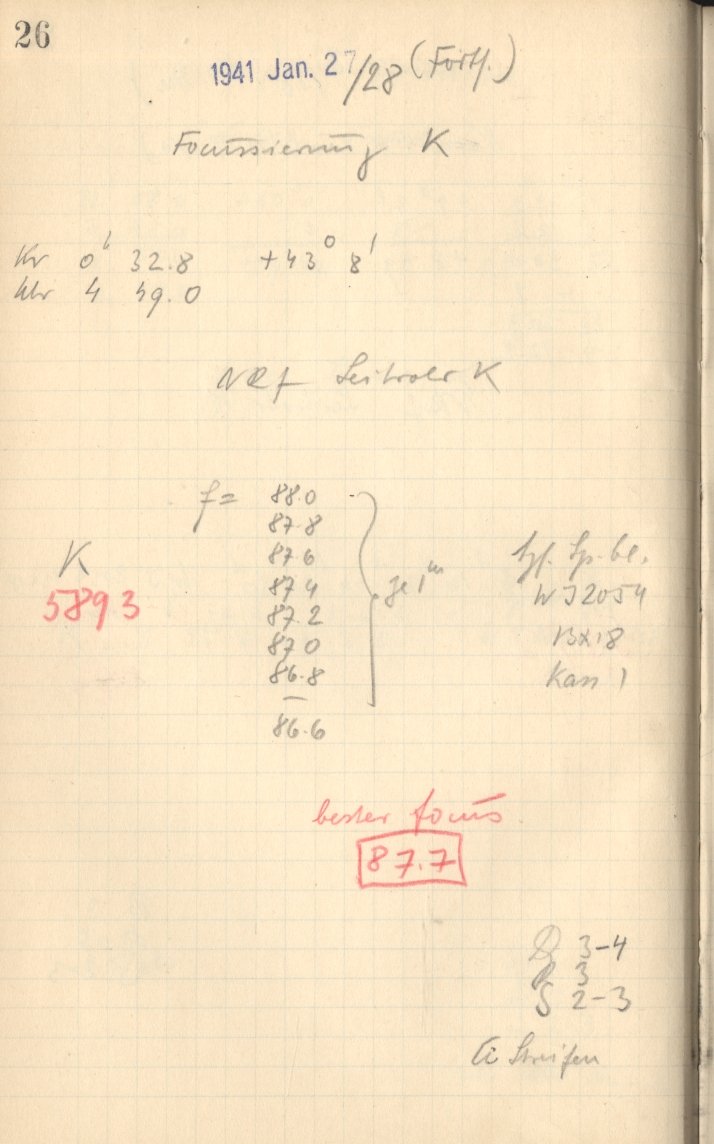 26
1941 Jan. 27/28 (Forts.)
Focussierung K
0ʰ 32.8 +43° 8'
4 49.0
K
f= 88.0
87.8
87.6
87.4
87.2
87.0
86.8
—
86.6
je 1ᵐ
K
5893
Sp. bl.
WJ2054
Kass 1
bester focus
87.7
3-4
R 3
S 2-3
Ci Streifen